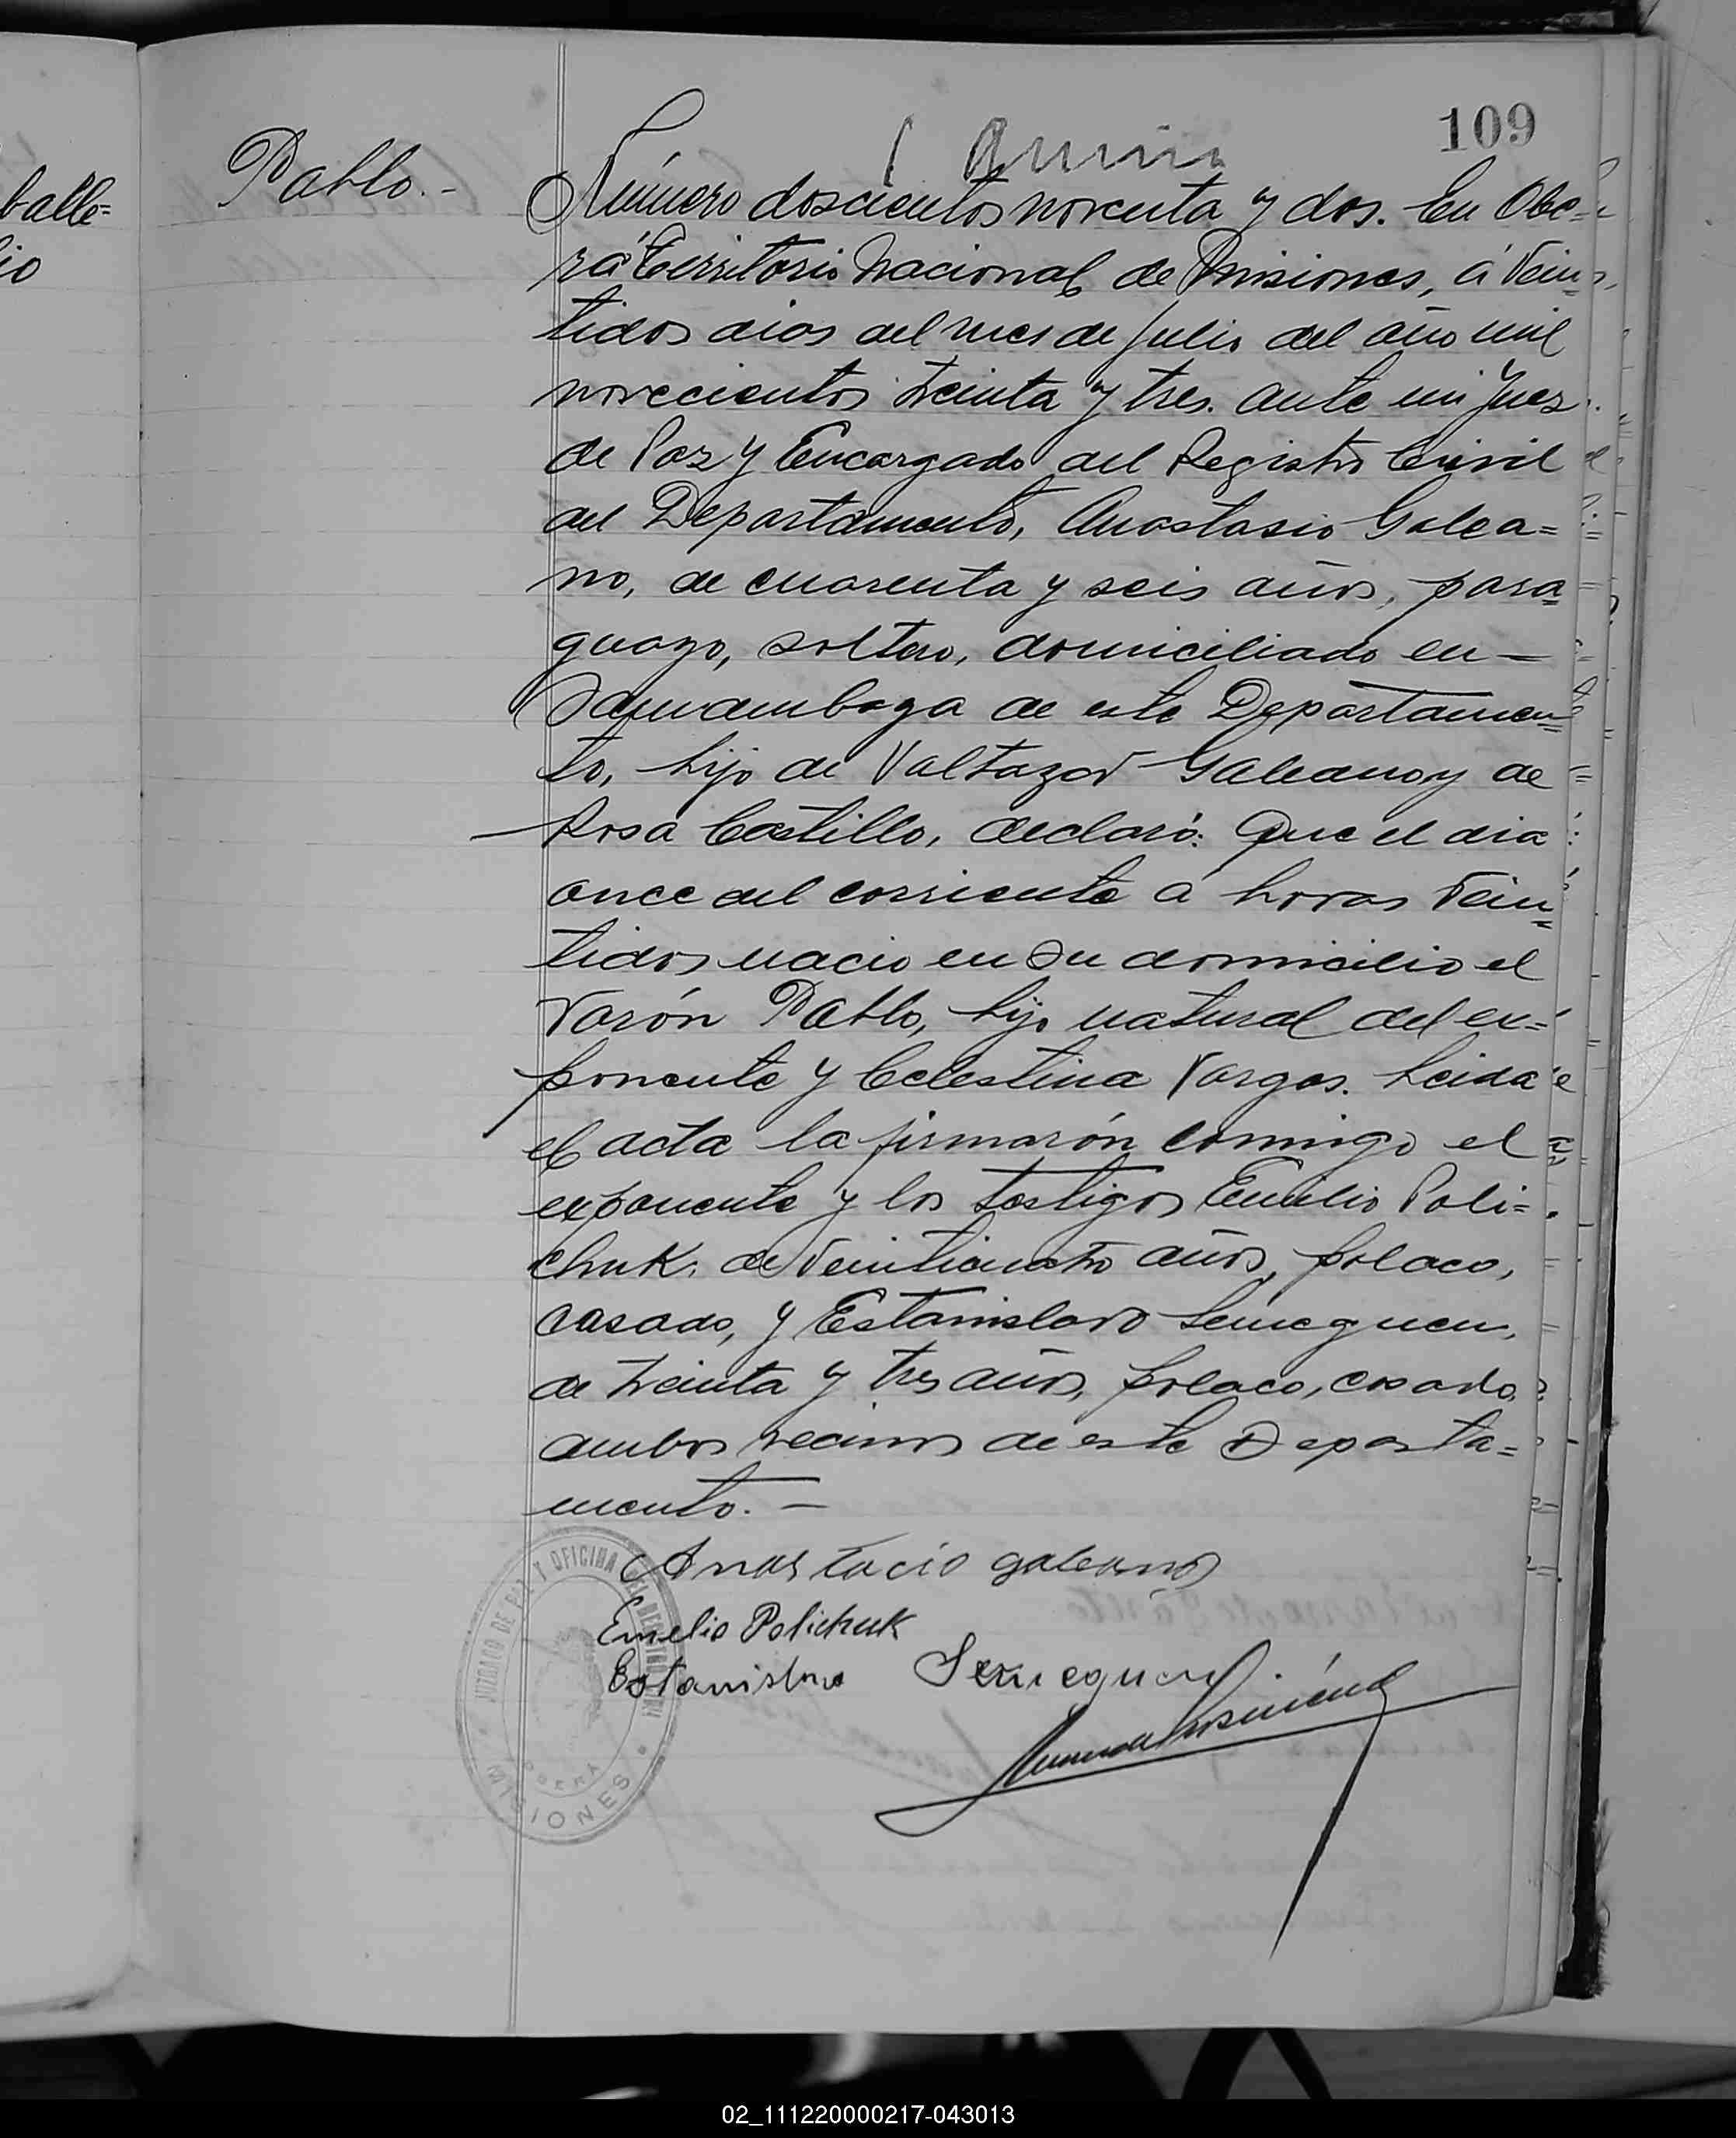 balle=
io
109
Pablo.-
Número doscientos noventa y dos. En Obe=
rá Territorio Nacional de Misiones, á vein=
tidos dias del mes de Julio del año mil
novecientos treinta y tres. ante mi Juez
de Paz y Encargado del Registro Civil
del Departamento, Anastasio Galea=
no, de cuarenta y seis años, para=
guayo, soltero, domiciliado en —
Samambaya de este Departamen=
to, hijo de Valtazar Galeano y de
Rosa Castillo, declaró: Que el dia
once del corriente a horas vein=
tidos nacio en su domicilio el
varón Pablo, hijo natural del ex=
ponente y Celestina Vargas. Leida
el acta la firmarón comigo el
exponente y los testigos Emilio Poli=
chuk. de veinticuatro años, polaco,
casado, y Estanislavo Semeguen,
de treinta y tres años, polaco, casado,
ambos vecinos de este Departa=
mento. —
Anastacio galeano
Emelio Polichuk
Estanislavo Semeguen
JUZGADO DE PAZ Y OFICINA DEL REGISTRO CIVIL
OBERÁ
MISIONES
02_111220000217-043013